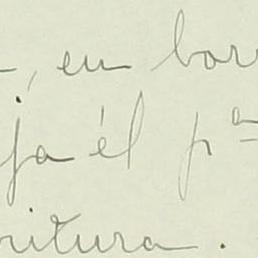 , en borr
ja él pª
ritura.